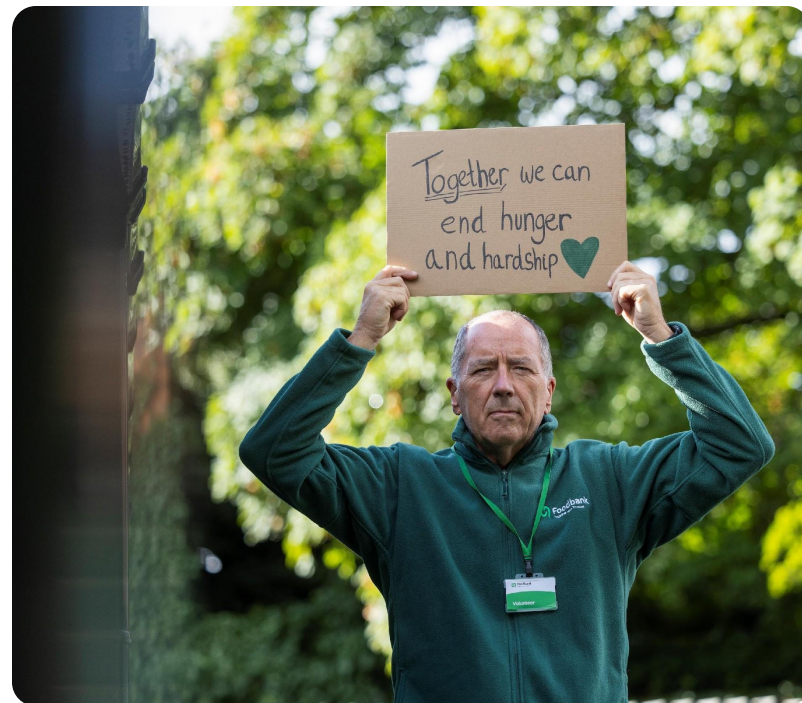 Together we can
end hunger
and hardship
Foodbank
Volunteer